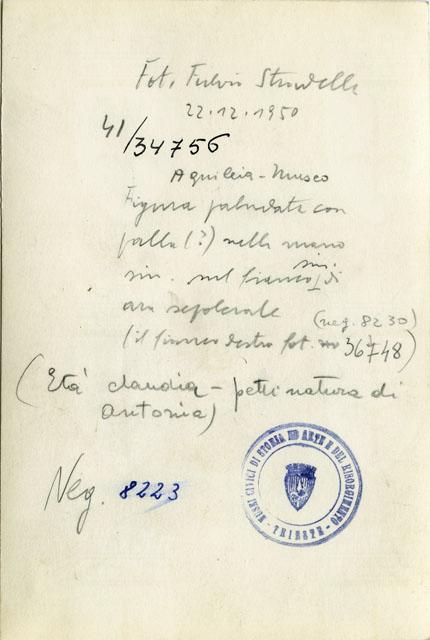 Fot. Fulvio Strudelle
22.12.1950
41/34756
Aquileia - Museo
Figura paludata con
palla (?) nella mano
sin. nel fianco sin. di
ara sepolcrale
(neg. 8230)
(il fianco destro fot. 36748)
(Età claudia - pettinatura di
Antonia)
Neg. 8223
MUSEI CIVICI DI STORIA ED ARTE E DEL RISORGIMENTO
- TRIESTE -